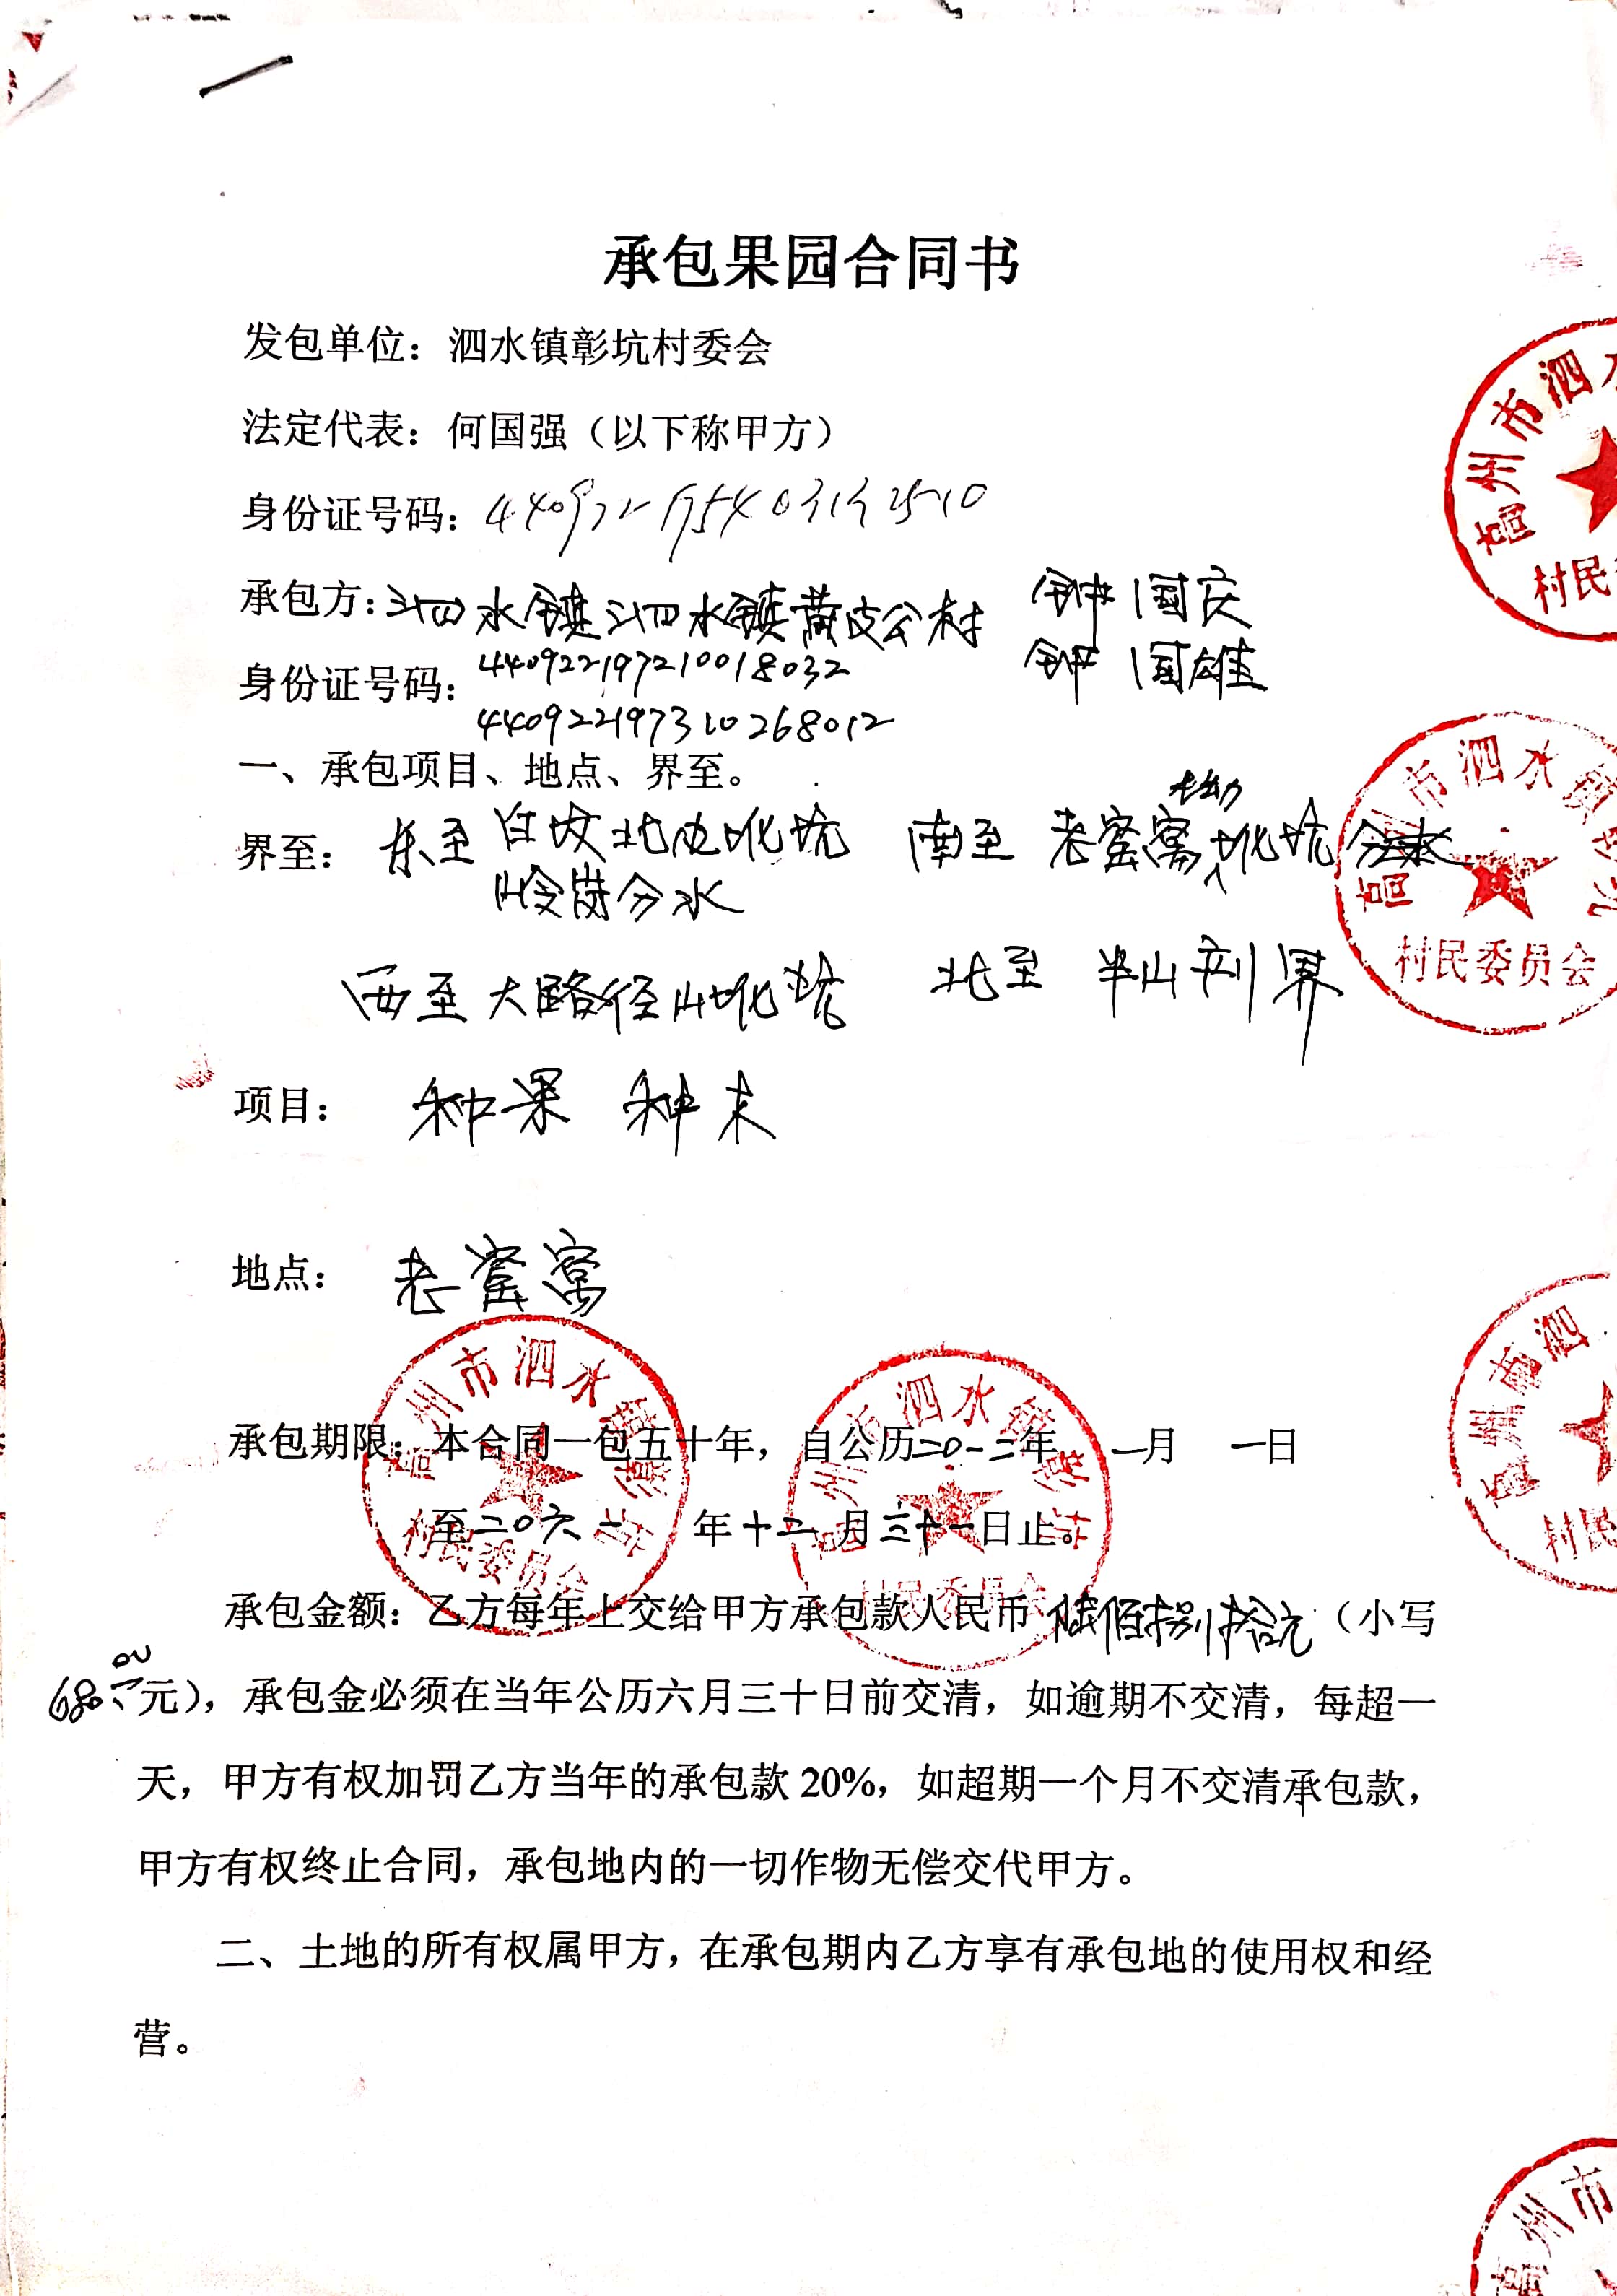 承包果园合同书
发包单位：泗水镇彰坑村委会
法定代表：何国强（以下称甲方）
身份证号码：
承包方：泗水镇泗水镇黄皮公村 钟国庆
钟国雄
身份证号码：440922197210018032
440922197310268012
一、承包项目、地点、界至。
界至：东至 白坟北边 坑 南至 老蜜窝 坑
岭岗分水
西至大路径山 坑 北至 半山 界
项目： 种果 种木
地点： 老蜜窝
承包期限：本合同一包五十年，自公历二0一二年 一月 一日
至二0六一 年十二月三十一日止。
承包金额：乙方每年上交给甲方承包款人民币 陆佰捌拾元（小写
680.00元），承包金必须在当年公历六月三十日前交清，如逾期不交清，每超一
天，甲方有权加罚乙方当年的承包款20%，如超期一个月不交清承包款，
甲方有权终止合同，承包地内的一切作物无偿交代甲方。
二、土地的所有权属甲方，在承包期内乙方享有承包地的使用权和经
营。
高州市泗水
村民
高州市泗水镇
村民委员会
高州市泗水镇彰坑
村民委员会
高州市泗水镇彰坑
村民委员会
高州市泗
村民
高州市